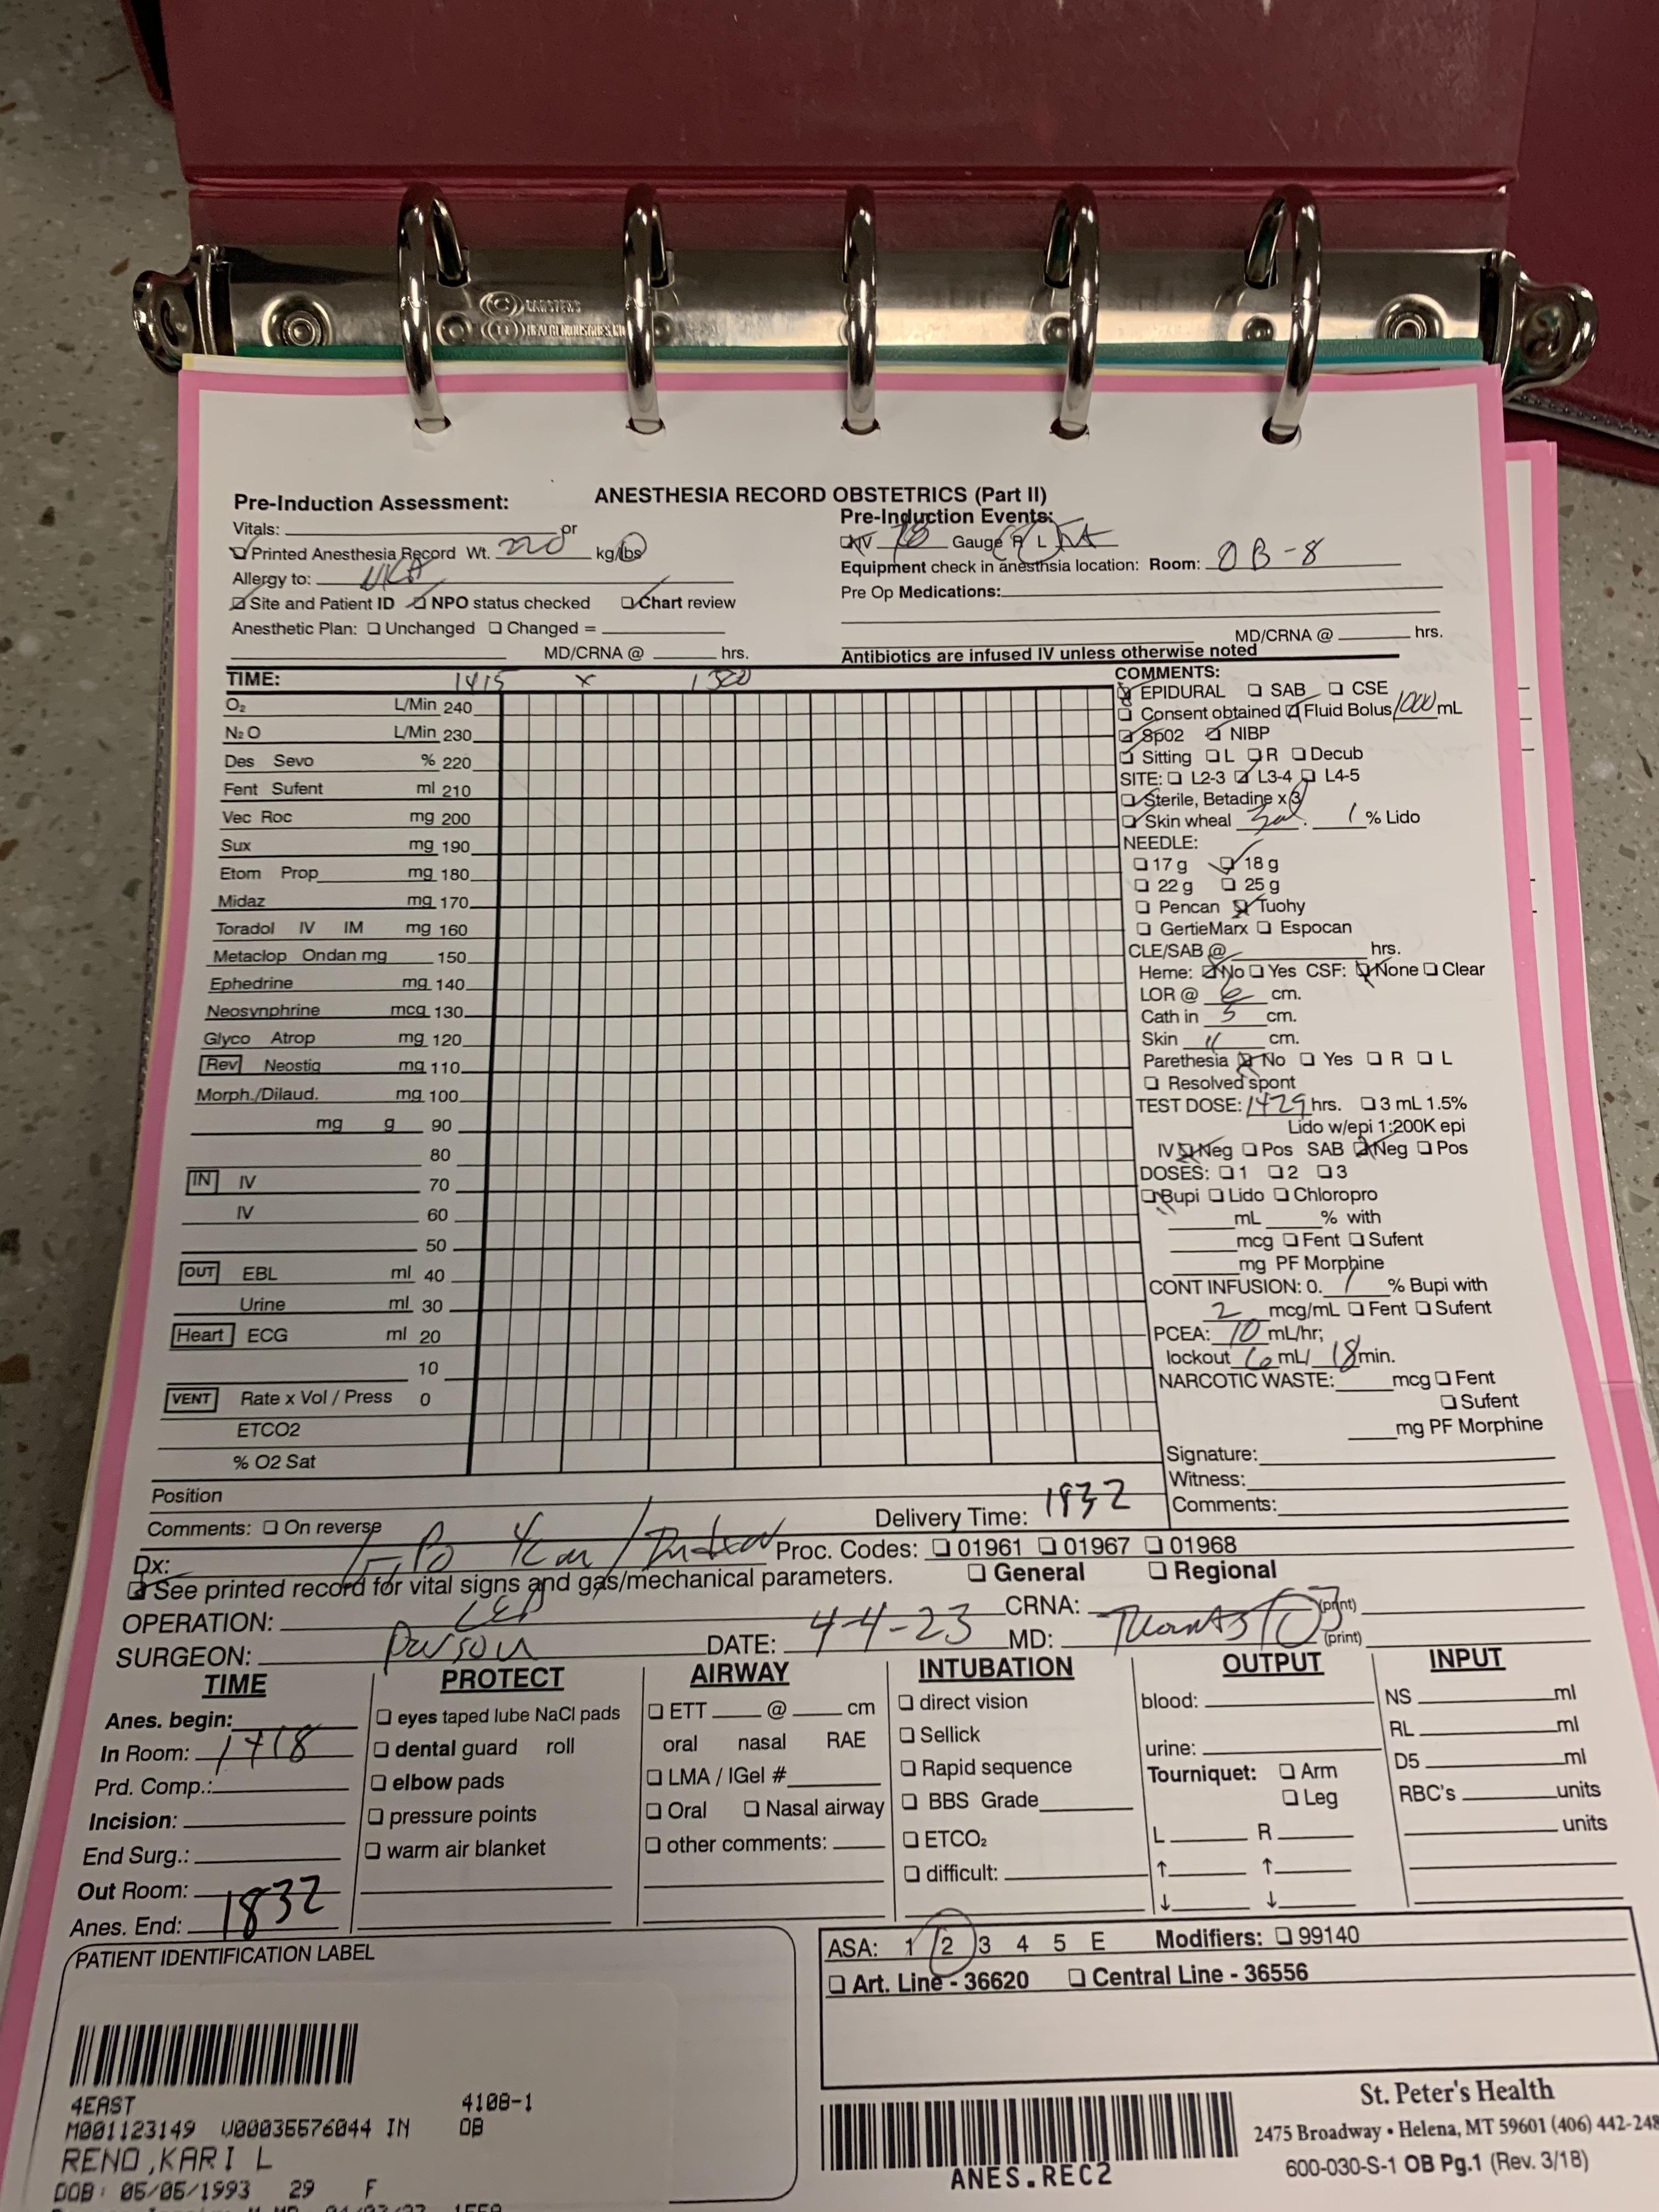 ANESTHESIA RECORD OBSTETRICS (Part II)
Pre-Induction Assessment:
Vitals: or
Printed Anesthesia Record Wt. 220 kg/lbs
Allergy to: NKA
Site and Patient ID NPO status checked Chart review
Anesthetic Plan: Unchanged Changed =
MD/CRNA @ hrs.
Pre-Induction Events:
IV 18 Gauge R L
Equipment check in anesthsia location: Room: OB-8
Pre Op Medications:
MD/CRNA @ hrs.
Antibiotics are infused IV unless otherwise noted
TIME: 1415 x
O₂ L/Min 240
N₂O L/Min 230
Des Sevo % 220
Fent Sufent ml 210
Vec Roc mg 200
Sux mg 190
Etom Prop mg 180
Midaz mg 170
Toradol IV IM mg 160
Metaclop Ondan mg 150
Ephedrine mg 140
Neosynphrine mcg 130
Glyco Atrop mg 120
Rev Neostig mg 110
Morph./Dilaud. mg 100
mg g 90
80
IN IV 70
IV 60
50
OUT EBL ml 40
Urine ml 30
Heart ECG ml 20
10
VENT Rate x Vol / Press 0
ETCO2
% O2 Sat
Position
Comments: On reverse
COMMENTS:
EPIDURAL SAB CSE
Consent obtained Fluid Bolus 1000 mL
Sp02 NIBP
Sitting L R Decub
SITE: L2-3 L3-4 L4-5
Sterile, Betadine x 3
Skin wheal 1 % Lido
NEEDLE:
17 g 18 g
22 g 25 g
Pencan Tuohy
GertieMarx Espocan
CLE/SAB @ hrs.
Heme: No Yes CSF: None Clear
LOR @ 6 cm.
Cath in 5 cm.
Skin 11 cm.
Parethesia No Yes R L
Resolved spont
TEST DOSE: 1429 hrs. 3 mL 1.5%
Lido w/epi 1:200K epi
IV Neg Pos SAB Neg Pos
DOSES: 1 2 3
Bupi Lido Chloropro
mL % with
mcg Fent Sufent
mg PF Morphine
CONT INFUSION: 0.1 % Bupi with
2 mcg/mL Fent Sufent
PCEA: 10 mL/hr;
lockout 6 mL/ 18 min.
NARCOTIC WASTE: mcg Fent
Sufent
mg PF Morphine
Signature:
Witness:
Comments:
Delivery Time: 1832
Dx: Proc. Codes: 01961 01967 01968
See printed record for vital signs and gas/mechanical parameters. General Regional
OPERATION: LEP CRNA: (print)
SURGEON: DATE: 4-4-23 MD: (print)
TIME
Anes. begin:
In Room: 1418
Prd. Comp.:
Incision:
End Surg.:
Out Room:
Anes. End: 1832
PROTECT
eyes taped lube NaCl pads
dental guard roll
elbow pads
pressure points
warm air blanket
AIRWAY
ETT @ cm
oral nasal RAE
LMA / IGel #
Oral Nasal airway
other comments:
INTUBATION
direct vision
Sellick
Rapid sequence
BBS Grade
ETCO₂
difficult:
OUTPUT
blood:
urine:
Tourniquet: Arm
Leg
L R
↑ ↑
↓ ↓
INPUT
NS ml
RL ml
D5 ml
RBC's units
units
PATIENT IDENTIFICATION LABEL
4EAST 4108-1
M001123149 V00035576044 IN OB
RENO,KARI L
DOB: 05/05/1993 29 F
ASA: 1 2 3 4 5 E Modifiers: 99140
Art. Line - 36620 Central Line - 36556
ANES.REC2
St. Peter's Health
2475 Broadway • Helena, MT 59601 (406) 442-248
600-030-S-1 OB Pg.1 (Rev. 3/18)